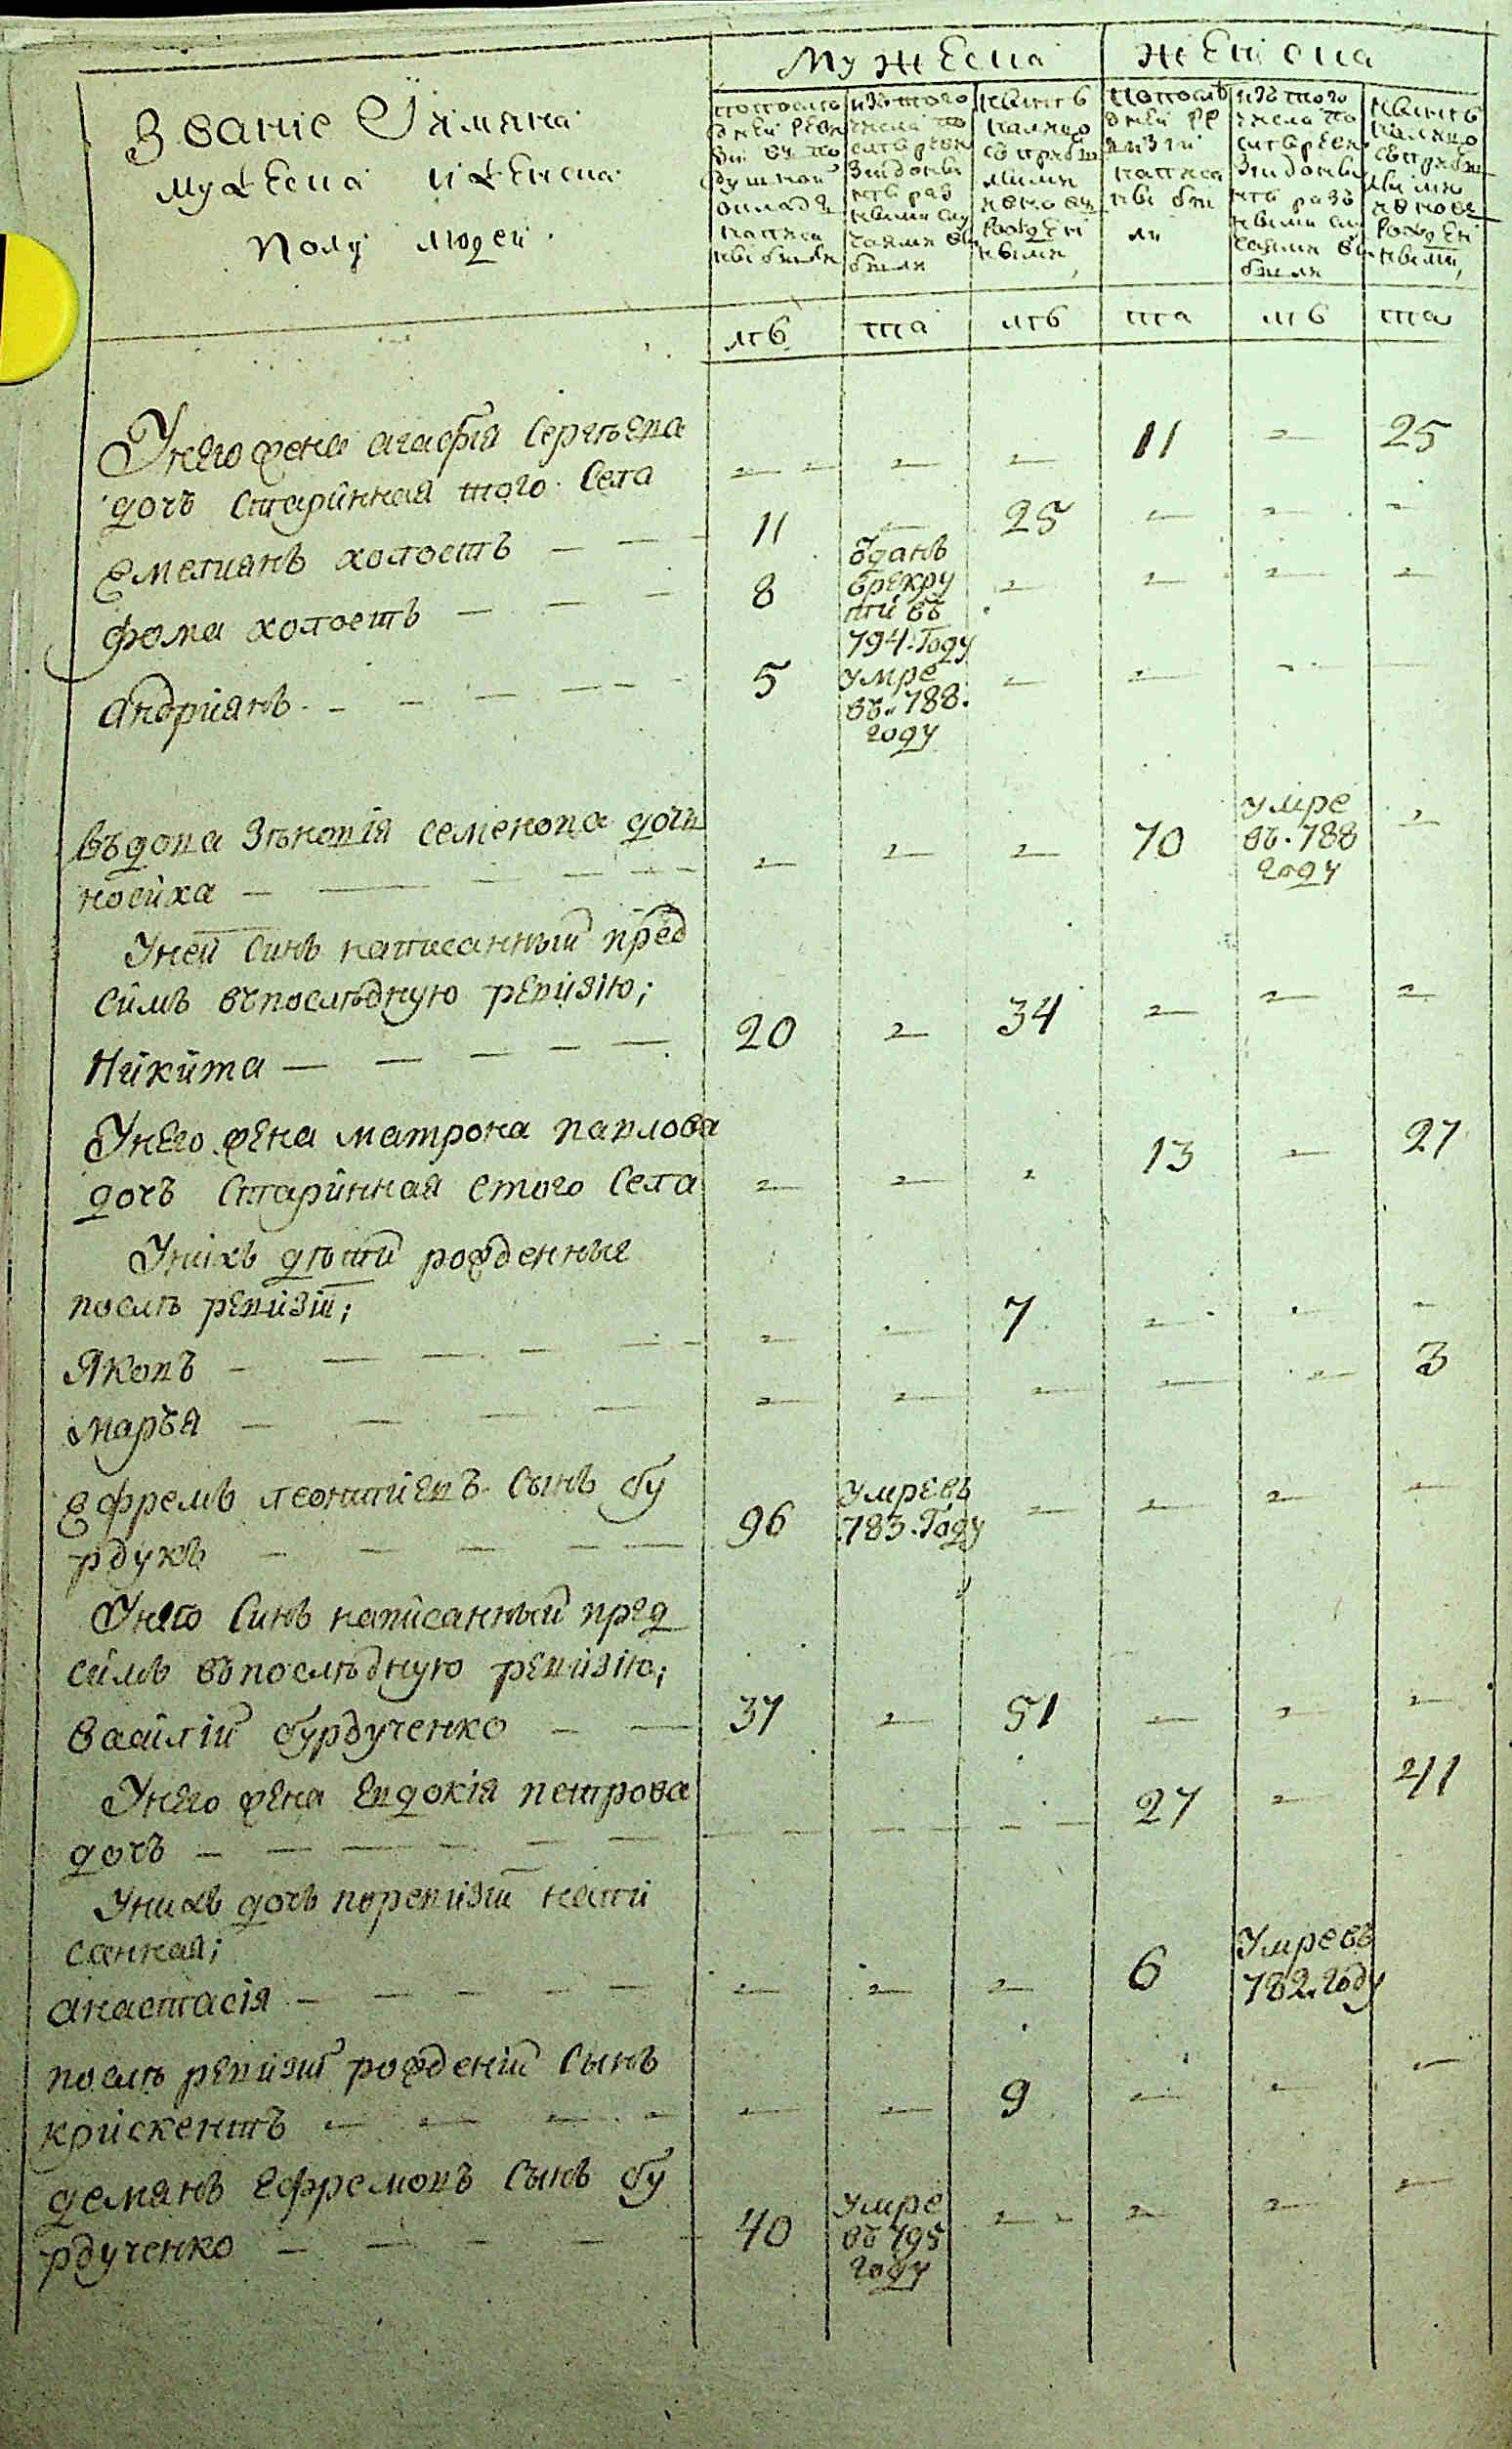 Мужеска
Женска
Званіе Їимяна
мужеска иженска
полу людей
попослѣ
дней реви
зіи въ по
душной
окладъ
написа
ны были
изътого
числа по
слѣ реви
зіи
раз
ными слу
чаями вы
были
нынѣ
налицо
съ прибы
лыми
вновь
рожден
ными
попослѣ
дней ре
визіи
написа
ны бы
ли
изътого
числа по
слѣ реви
зіи
разъ
ными слу
чаями вы
были
нынѣ
налицо
съ прибы
лыми
вновь
рожден
ными
лѣ та лѣ та лѣ та
Унего жена агафія Сергѣева
дочъ Старинная того Села 11 25
Емелианъ холостъ 11 25
фома холостъ 8 Ѿданъ
врекру
ти въ
794. Году
андриянъ 5 умре
въ. 788.
году
Въдова Зѣновія Семенова дочъ
носиха 70 умре
въ. 788
году
Уней Синъ написанный пред
Симъ въпослѣдную ревизію;
Никита 20 34
Унего жена матрона павлова
дочъ Старинная етого Села 13 27
Унихъ дѣти рожденные
послѣ ревизіи;
Яковъ 7
Марья 3
Ефремъ леонтиевъ Сынъ бу
рдукъ 96 умревъ
783. Году
Унего Синъ написанный пред
Симъ въпослѣдную ревизію;
Василій бурдученко 37 51
Унего жена Евдокія петрова
дочъ 27 41
Унихъ дочъ поревизіи напи
санная;
анастасія 6 Умревъ
782. году
послѣ ревизіи рожденій Сынъ
крискентъ 9
демянъ Ефремовъ Сынъ бу
рдученко 40 умре
въ 795
году